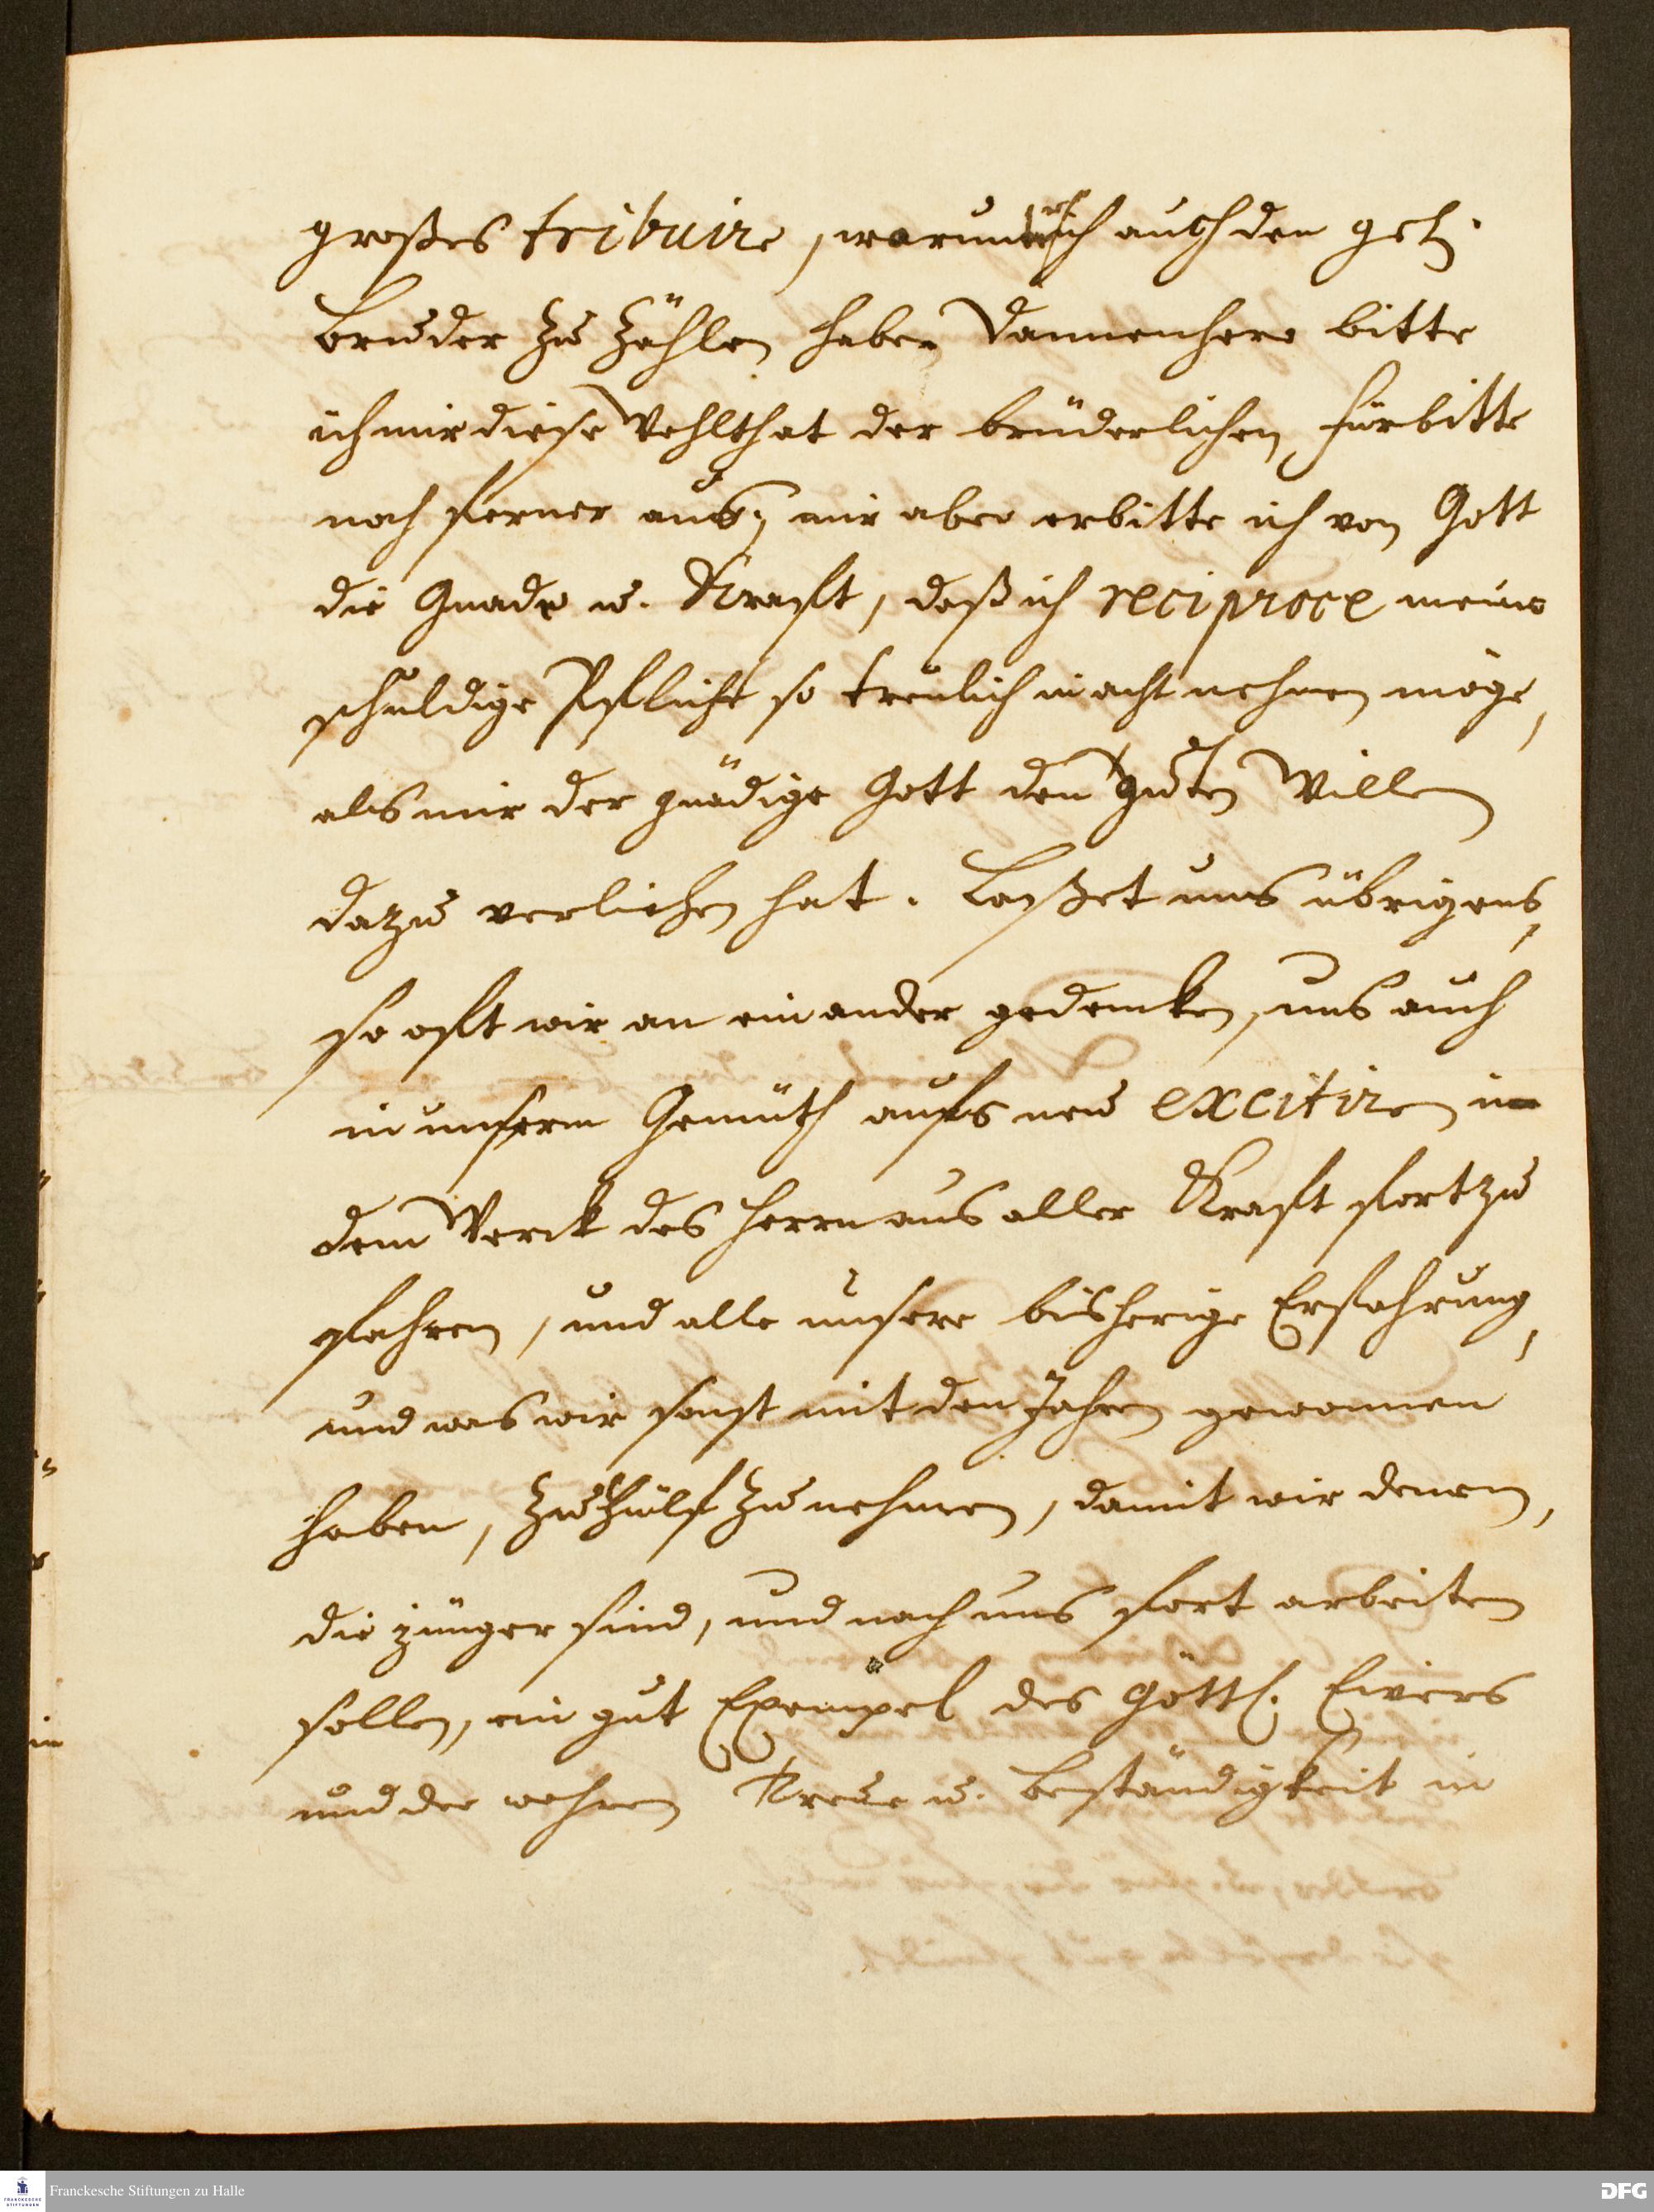 großes tribuire, warunter ich auch den gel.
Bruder zu zählen habe. Dannenhero bitte
ich mir diese Wohlthat der brüderlichen Fürbitte
noch ferner aus; mir aber erbitte ich von Gott
die Gnade u. Krafft, daß ich reciproce meine
schuldige Pflicht so treulich in acht nehmen möge,
als mir der gnädige Gott den guten Willen
dazu verliehen hat. Laßet uns übrigens,
so oft wir an einander gedencken, uns auch
in unserm Gemüth aufs neu excitiren in
dem Werck des Herrn aus aller Krafft fortzu
fahren, und alle unsere bißherige Erfahrung,
und was wir sonst mit den Jahren gewonnen
haben, zu Hülf zu nehmen, damit wir denen,
die jünger sind, und nach uns fort arbeiten
sollen, ein gut Exempel des Göttl. Eivers
und der wahren Treue u. Beständigkeit in
Franckesche Stiftungen zu Halle
DFG